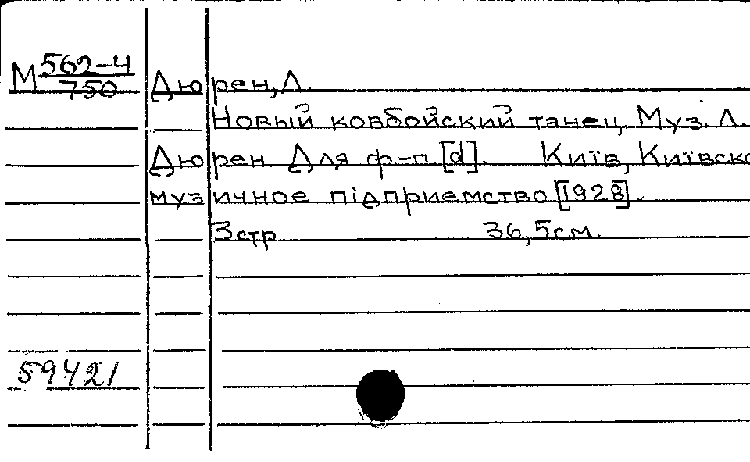 М 562-4
750
Дюрен, Л.
Новый ковбойский танец. Муз. Л.
Дюрен Для ф-п [d]. Київ, Київско
музичное підприемство [1928].
3стр 36,5см.
59421